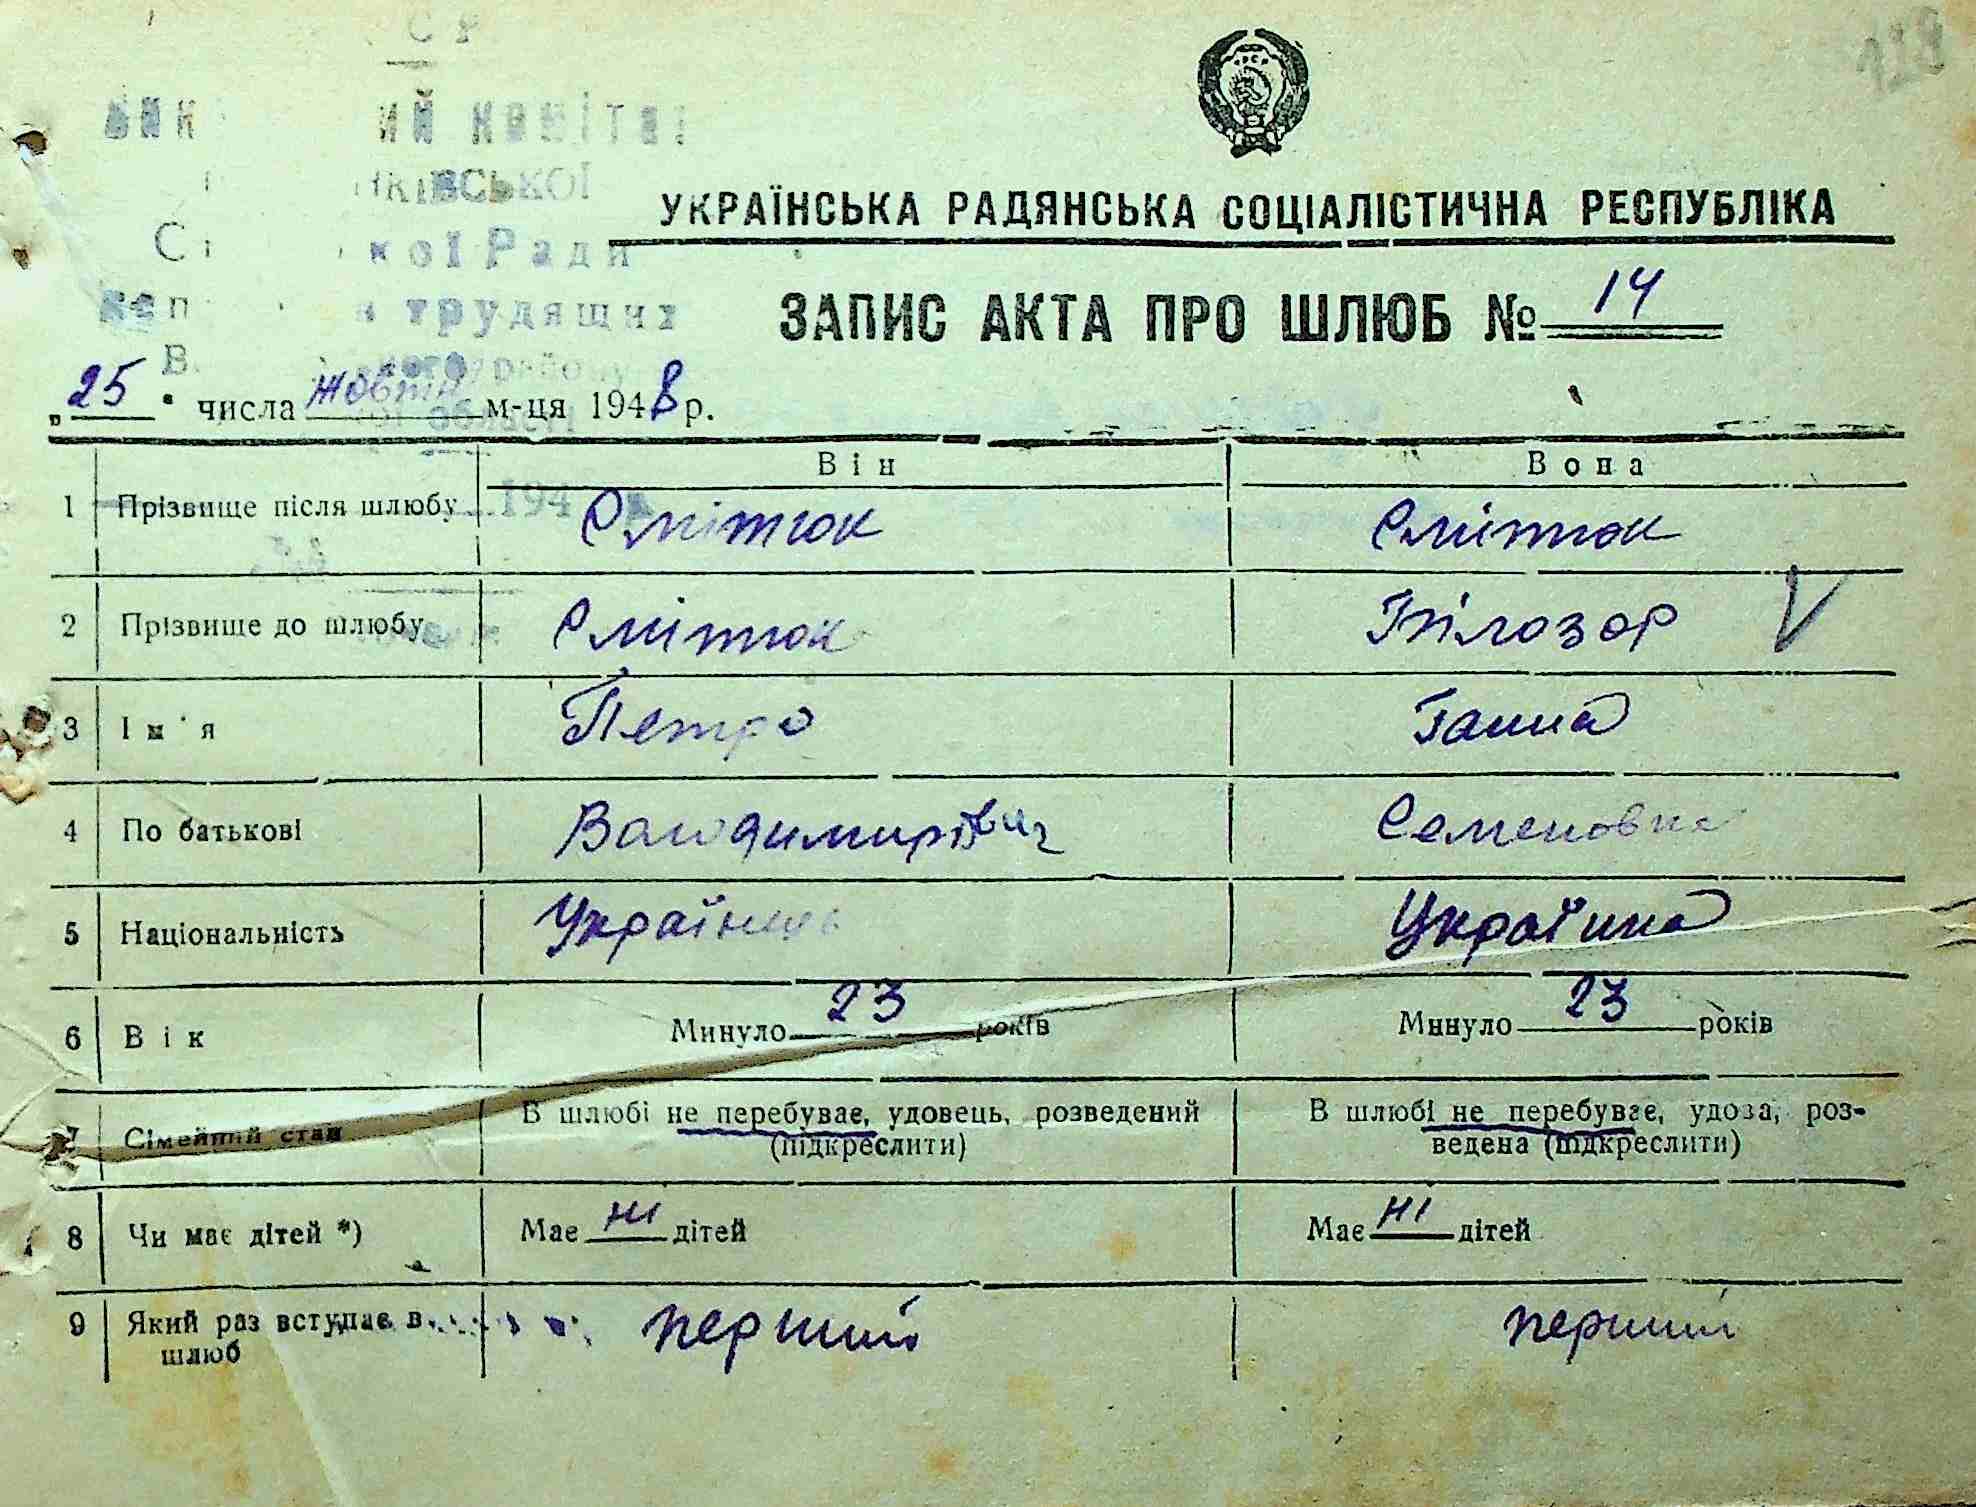 128
УКРАЇНСЬКА РАДЯНСЬКА СОЦІАЛІСТИЧНА РЕСПУБЛІКА
ЗАПИС АКТА ПРО ШЛЮБ № 14
„25" числа жовтня м-ця 1948 р.
Він Вона
1 Прізвище після шлюбу Смітюк Смітюк
2 Прізвище до шлюбу Смітюк Білозор V
3 Ім'я Петро Ганна
4 По батькові Володимирович Семеновна
5 Національність Українець Українка
6 Вік Минуло 23 років Минуло 23 років
7 Сімейний стан В шлюбі не перебуває, удовець, розведений В шлюбі не перебуває, удова, роз-
(підкреслити) ведена (підкреслити)
8 Чи має дітей *) Має ні дітей Має ні дітей
9 Який раз вступає в перший перший
шлюб